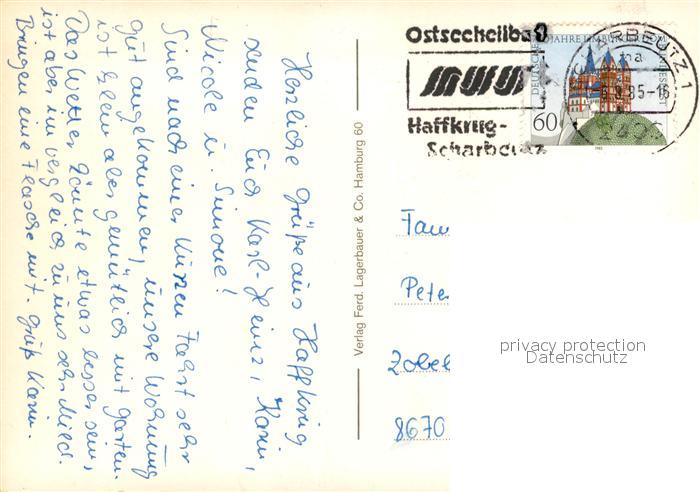 Herzliche Grüße aus Haffkrug
senden Euch Karl-Heinz, Karin,
Nicole u. Simone!
Sind nach einer kurzen Fahrt sehr
gut angekommen, unsere Wohnung
ist klein aber gemütlich mit Garten.
Das Wetter könnte etwas besser sein,
ist aber im vergleich zu uns sehr Mild.
Bringen eine Flasche mit. Gruß Karin.
Verlag Ferd. Lagerbauer & Co. Hamburg 60
Ostseeheilbad
Haffkrug-
Scharbeutz
SCHARBEUTZ 1
-6.9.85-16
2409
DEUTSCHE BUNDESPOST
JAHRE LIMBURGER DOM
60
Fam
Pete
Zobel
8670
privacy protection
Datenschutz